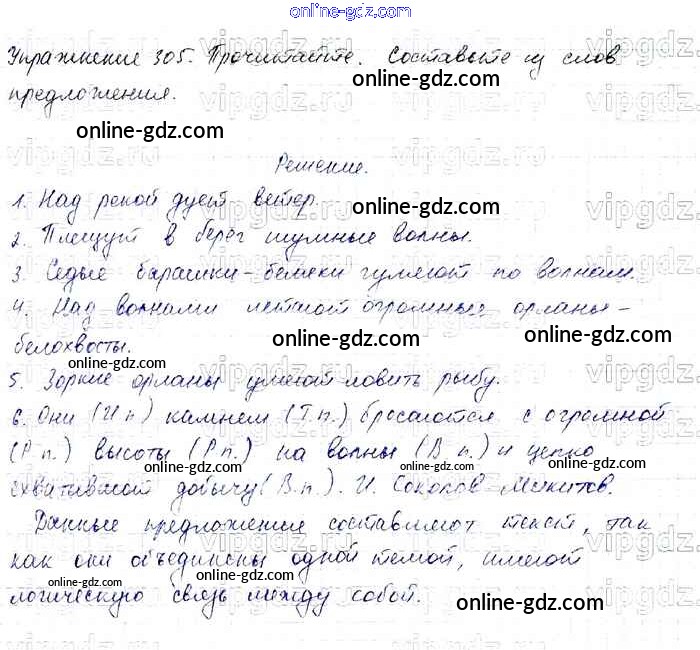 online-gdz.com
Упражнение 305. Прочитайте. Составьте из слов
online-gdz.com
предложения.
online-gdz.com
Решение.
1. Над рекой дует ветер.
online-gdz.com
2. Плещут в берег шумные волны.
3. Седые барашки-беляки гуляют по волнам.
4. Над волнами летают огромные орланы-
online-gdz.com
белохвосты.
online-gdz.com
online-gdz.com
5. Зоркие орланы умеют ловить рыбу.
6. Они (И п.) камнем (Т.п.) бросаются с огромной
(Р п.) высоты (Р п.) на волны (В п.) и цепко
online-gdz.com
online-gdz.com
схватывают добычу (В.п.). И. Соколов-Микитов.
Данные предложения составляют текст, так
как они объединены одной темой, имеют
online-gdz.com
online-gdz.com
логическую связь между собой.
online-gdz.com
vipgdz.ru